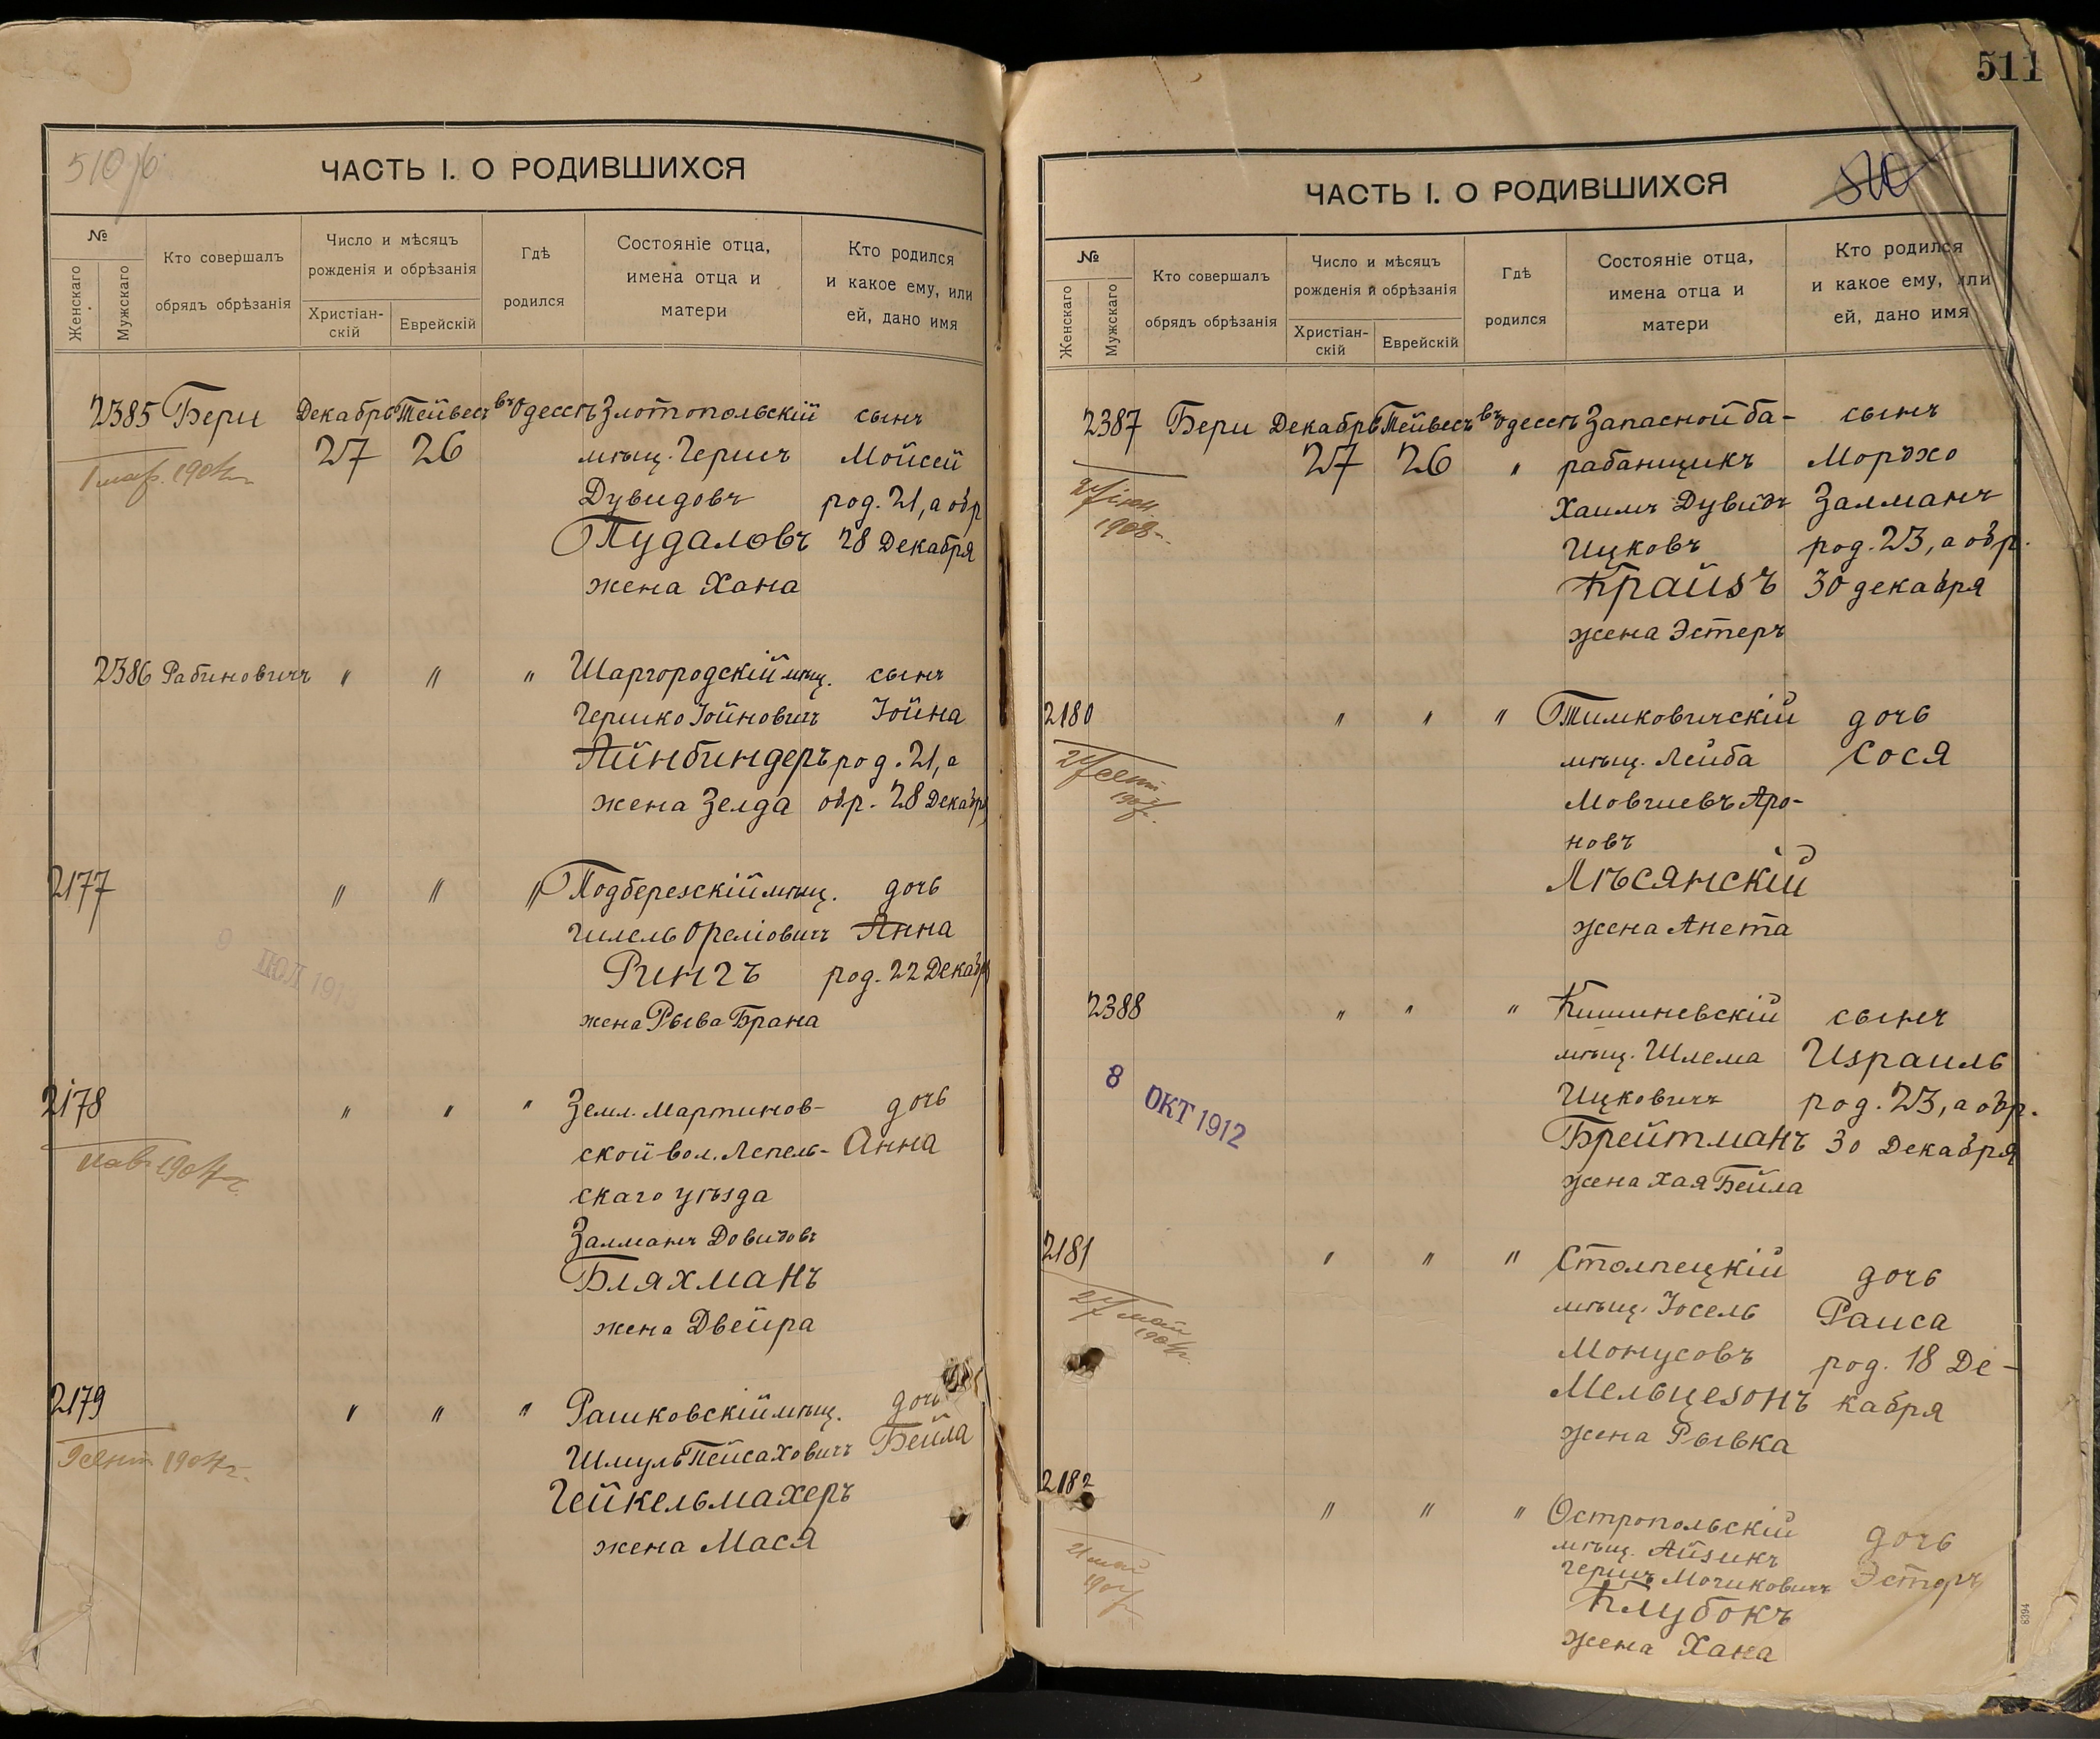 510 об
ЧАСТЬ I. О РОДИВШИХСЯ
№
Женскаго
Мужскаго
Кто совершалъ
обрядъ обрѣзанія
Число и мѣсяцъ
рожденія и обрѣзанія
Христіан-
скій
Еврейскій
Гдѣ
родился
Состояніе отца,
имена отца и
матери
Кто родился
и какое ему, или
ей, дано имя
2385 Бери Декабрь Тейвесъ въ Одессѣ Златопольскій сынъ
27 26 мѣщ. Гершъ Мойсей
1 мар. 1904 г.
Дувидовъ род. 21, а обр
Пудаловъ 28 Декабря
жена Хана
2386 Рабиновичъ " " " Шаргородскій мѣщ. сынъ
Гершко Іойновичъ Іойна
Айнбиндеръ род. 21, а
жена Зелда обр. 28 Декабр
2177 " " " Подберезскій мѣщ. дочь
Гилель Ореліовичъ Анна
Рингъ род. 22 Декабр
9 ІЮЛ 1913
жена Рыва Брана
2178 " " " Земл. Мартинов- дочь
ской вол. Лепель- Анна
1904 г.
скаго уѣзда
Залманъ Довидовъ
Бляхманъ
жена Двейра
2179 " " " Рашковскій мѣщ. дочь
Шмуль Пейсаховичъ Бейла
сент 1904 г.
Гейкельмахеръ
жена Мася
511
510
ЧАСТЬ I. О РОДИВШИХСЯ
№
Женскаго
Мужскаго
Кто совершалъ
обрядъ обрѣзанія
Число и мѣсяцъ
рожденія и обрѣзанія
Христіан-
скій
Еврейскій
Гдѣ
родился
Состояніе отца,
имена отца и
матери
Кто родился
и какое ему, или
ей, дано имя
2387 Бери Декабрь Тейвесъ въ Одессѣ Запасной ба- сынъ
27 26 " рабанщикъ Мордхо
Хаимъ Дувидъ Залманъ
1908 г.
Ицковъ род. 23, а обр.
Крайзъ 30 декабря
жена Эстеръ
2180 " " " Тимковичскій дочь
мѣщ. Лейба Сося
Мовшевъ Аро-
новъ
Лѣсянскій
жена Анета
2388 " " " Кишиневскій сынъ
мѣщ. Шлема Израиль
8 ОКТ 1912
Ицковичъ род. 23, а обр.
Брейтманъ 30 Декабря
жена Хая Бейла
2181 " " " Столпецкій дочь
мѣщ. Іосель Раиса
май 1904 г.
Монусовъ род. 18 Де-
Мельцезонъ кабря
жена Рывка
2182 " " " Остропольскій дочь
мѣщ. Айзикъ
Гершъ Мошковичъ Эстеръ
21 май
Клубокъ
жена Хана
8394